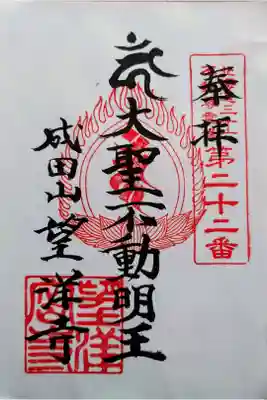 奉拝
第二十二番
大聖不動明王
成田山望洋寺